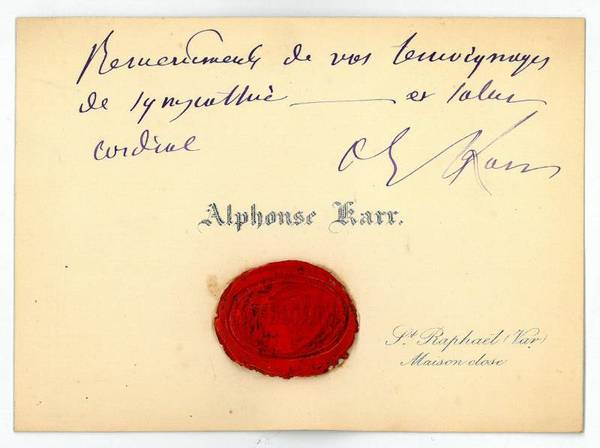 Remerciements de vos temoignages
de sympathie ——— et salut
cordial
A Karr
Alphonse Karr.
St. Raphaël (Var)
Maison close